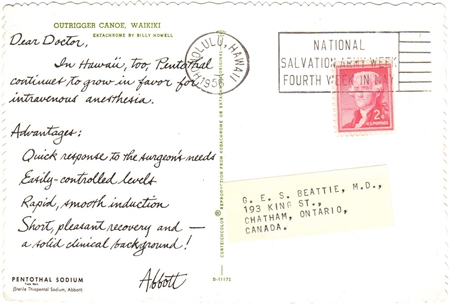 OUTRIGGER CANOE, WAIKIKI
EKTACHROME BY BILLY HOWELL
Dear Doctor,
In Hawaii, too, Pentothal
continues to grow in favor for
intravenous anesthesia.
Advantages:
Quick response to the surgeon's needs
Easily-controlled levels
Rapid, smooth induction
Short, pleasant recovery and —
a solid clinical background!
Abbott
PENTOTHAL SODIUM
(Sterile Thiopental Sodium, Abbott)
REPRODUCTION FROM KODACHROME OR EKTACHROME
D-11172
HONOLULU, HAWAII
1956
NATIONAL
SALVATION ARMY WEEK
FOURTH WEEK IN MAY
2¢
U.S. POSTAGE
G. E. S. BEATTIE, M.D.,
193 KING ST.,
CHATHAM, ONTARIO,
CANADA.